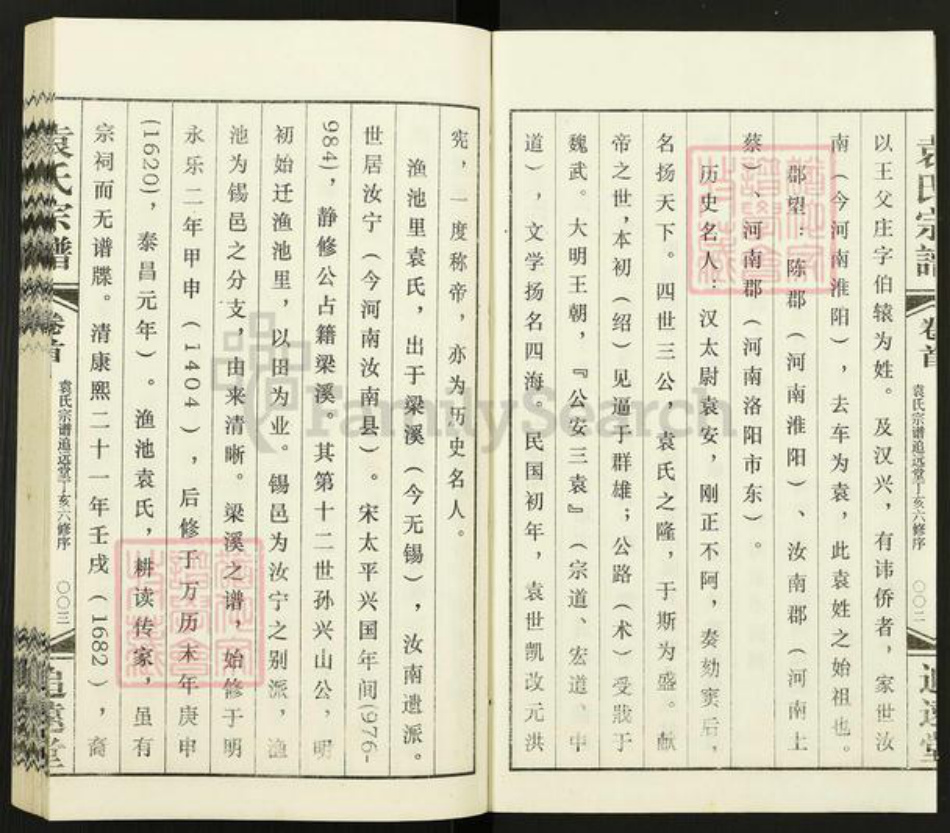 袁氏宗谱
卷首
袁氏宗谱追远堂丁亥六修序
〇〇三
追远堂
以王父庄字伯辕为姓。及汉兴，有讳侨者，家世汝
南（今河南淮阳），去车为袁，此袁姓之始祖也。
郡望：陈郡（河南淮阳）、汝南郡（河南上
蔡）、河南郡（河南洛阳市东）。
历史名人：汉太尉袁安，刚正不阿，奏劾窦后，
名扬天下。四世三公，袁氏之隆，于斯为盛。献
帝之世，本初（绍）见逼于群雄；公路（术）受戕于
魏武。大明王朝，『公安三袁』（宗道、宏道、中
道），文学扬名四海。民国初年，袁世凯改元洪
宪，一度称帝，亦为历史名人。
渔池里袁氏，出于梁溪（今无锡），汝南遗派。
世居汝宁（今河南汝南县）。宋太平兴国年间(976-
984)，静修公占籍梁溪。其第十二世孙兴山公，明
初始迁渔池里，以田为业。锡邑为汝宁之别派，渔
池为锡邑之分支，由来清晰。梁溪之谱，始修于明
永乐二年甲申（1404），后修于万历末年庚申
(1620)，泰昌元年）。渔池袁氏，耕读传家，虽有
宗祠而无谱牒。清康熙二十一年壬戌（1682），裔
袁氏宗谱
卷首
袁氏宗谱追远堂丁亥六修序
〇〇三
追远堂
FamilySearch